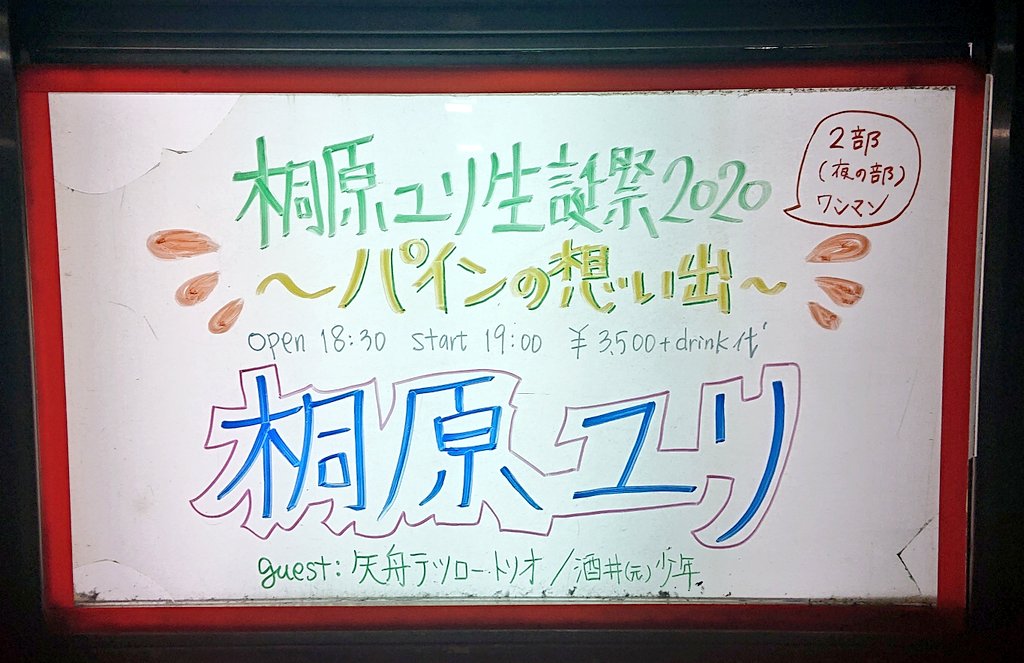 桐原ユリ生誕祭2020
～パインの想い出～
2部
(夜の部)
ワンマン
open 18:30 start 19:00 ¥3,500+drink代
桐原ユリ
guest: 矢舟テツロートリオ/酒井(元)少年